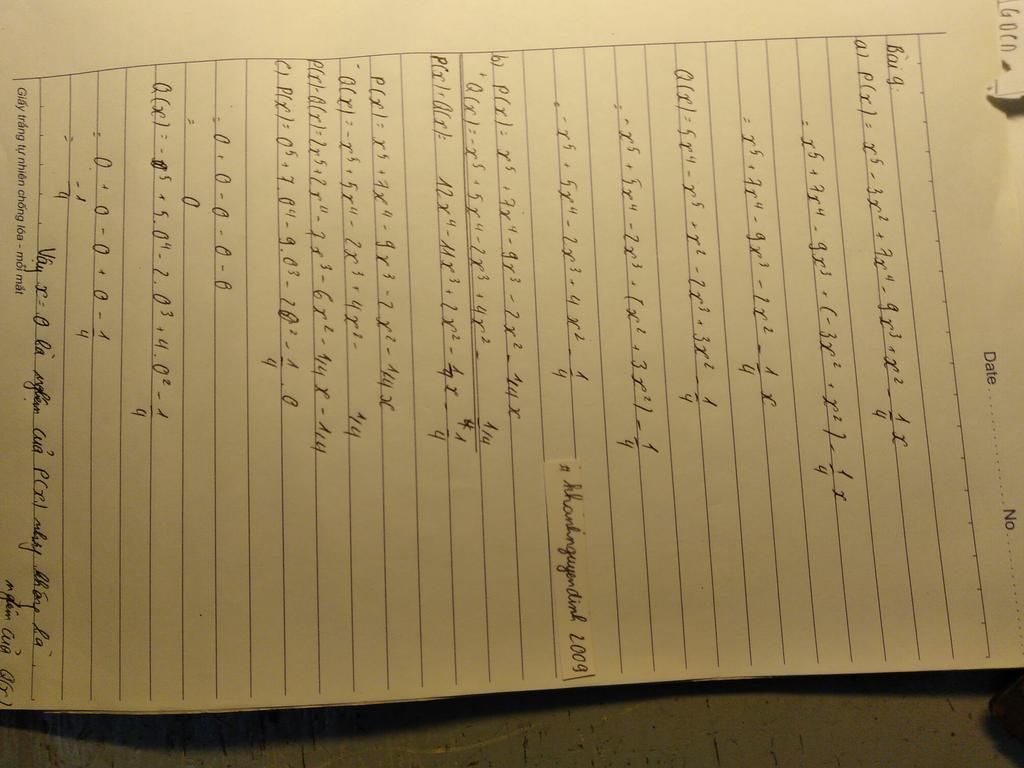 GDCD
Date
No
Bài 9:
a) P(x) = x⁵ - 3x² + 7x⁴ - 9x³ + x² - 1/4 x
= x⁵ + 7x⁴ - 9x³ + (-3x² + x²) - 1/4 x
= x⁵ + 7x⁴ - 9x³ - 2x² - 1/4 x
Q(x) = 5x⁴ - x⁵ + x² - 2x³ + 3x² - 1/4
= - x⁵ + 5x⁴ - 2x³ + (x² + 3x²) - 1/4
= - x⁵ + 5x⁴ - 2x³ + 4x² - 1/4
# khanhnguyendinh 2009
b) P(x) = x⁵ + 7x⁴ - 9x³ - 2x² - 1/4 x
+ Q(x) = -x⁵ + 5x⁴ - 2x³ + 4x² - 1/4
P(x) + Q(x) = 12x⁴ - 11x³ + 2x² - 1/4x - 1/4
P(x) = x⁵ + 7x⁴ - 9x³ - 2x² - 1/4 x
- Q(x) = -x⁵ + 5x⁴ - 2x³ + 4x² - 1/4
P(x) - Q(x) = 2x⁵ + 2x⁴ - 7x³ - 6x² - 1/4 x - 1/4
c) P(x) = 0⁵ + 7.0⁴ - 9.0³ - 2.0² - 1/4 . 0
= 0 + 0 - 0 - 0 - 0
= 0
Q(x) = -0⁵ + 5.0⁴ - 2.0³ + 4.0² - 1/4
= 0 + 0 - 0 + 0 - 1/4
= -1/4
Vậy x = 0 là nghiệm của P(x) nhưng không là
nghiệm của Q(x)
Giấy trắng tự nhiên chống lóa - mỏi mắt